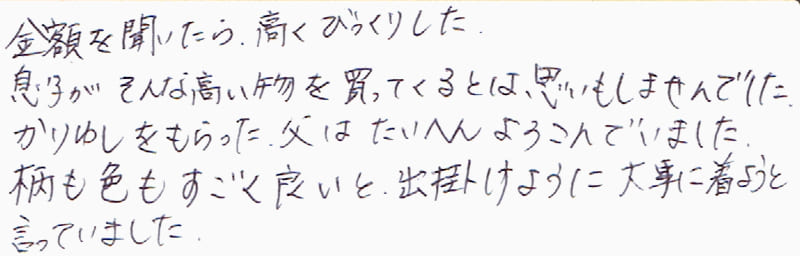 金額を聞いたら、高くびっくりした。
息子がそんな高い物を買ってくるとは、思いもしませんでした。
かりゆしをもらった、父はたいへんよろこんでいました。
柄も色もすごく良いと、出掛けように大事に着ようと
言っていました。